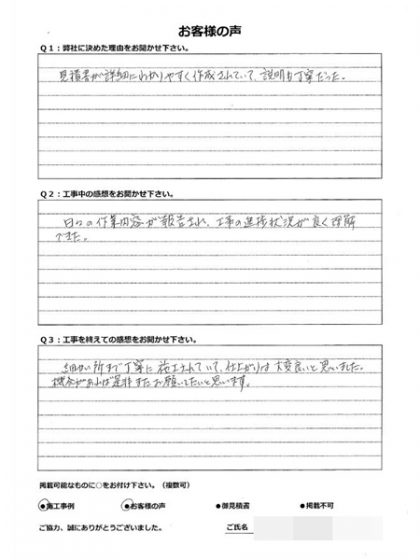 お客様の声
Q1：弊社に決めた理由をお聞かせ下さい。
見積書が詳細にわかりやすく作成されていて、説明も丁寧だった。
Q2：工事中の感想をお聞かせ下さい。
日々の作業内容が報告され、工事の進捗状況が良く理解
できた。
Q3：工事を終えての感想をお聞かせ下さい。
細かい所まで丁寧に施工されていて、仕上がりは大変良いと思いました。
機会があれば是非またお願いしたいと思います。
掲載可能なものに○をお付け下さい。（複数可）
●施工事例 ●お客様の声 ●御見積書 ●掲載不可
ご協力、誠にありがとうございました。 ご氏名